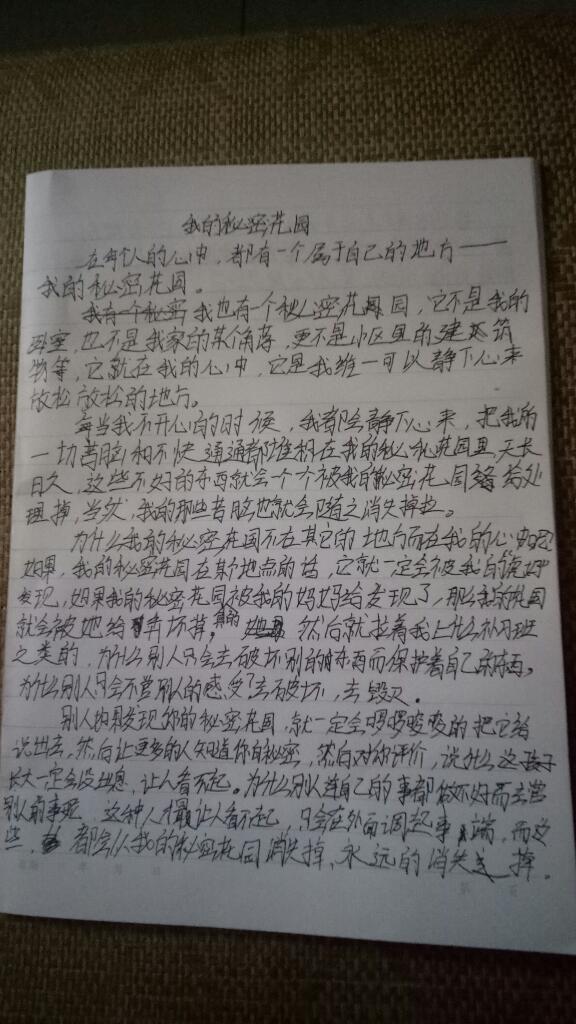 我的秘密花园
在每个人的心中，都有一个属于自己的地方——
我的秘密花园。
我也有一个秘密花园，它不是我的
卧室，也不是我家的某个角落，更不是小区里的建筑
物等，它就在我的心中，它是我唯一可以静下心来
放松放松的地方。
每当我不开心的时候，我都会静下心来，把我的
一切苦脑和不快通通都堆积在我的秘密花园里，天长
日久，这些不好的东西就会一个个被我的秘密花园给处
理掉，当然，我的那些苦脑也就会随之消失掉拉。
为什么我的秘密花园不在其它的地方而在我的心中呢？因
如果，我的秘密花园在某个地点的话，它就一定会被我的妈妈
发现，如果我的秘密花园被我的妈妈给发现了，那么我的花园
就会被她给弄坏掉，然后就拉着我上什么补习班
之类的，为什么别人只会去破坏别的东西而保护着自己的东西，
为什么别人只会不管别人的感受了去破坏，去毁灭。
别人如果发现你的秘密花园，就一定会啰啰唆唆的把它给
说出去，然后让更多的人知道你的秘密，然后对你评价，说什么这孩子
长大一定会没出息，让人看不起。为什么别人连自己的事都做不好而去管
别人的事呢，这种人才最让人看不起，只会在外面调起事端，而这
些，都会从我的秘密花园消失掉，永远的消失掉。